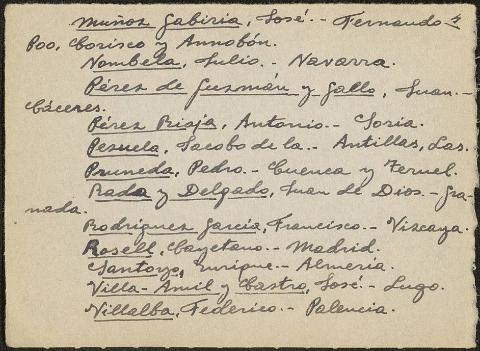 Muñoz Gabiria, José.- Fernando
Poo, Corisco y Annobón.
Nombela, Julio.- Navarra.
Pérez de Guzmán y Gallo, Juan.-
Cáceres.
Pérez Rioja, Antonio.- Soria.
Pezuela, Jacobo de la.- Antillas, Las.
Pruneda, Pedro.- Cuenca y Teruel.
Rada y Delgado, Juan de Dios.- Gra-
nada.
Rodríguez García, Francisco.- Vizcaya.
Rosell, Cayetano.- Madrid.
Santoyo, Enrique.- Almería.
Villa-Amil y Castro, José.- Lugo.
Villalba, Federico.- Palencia.